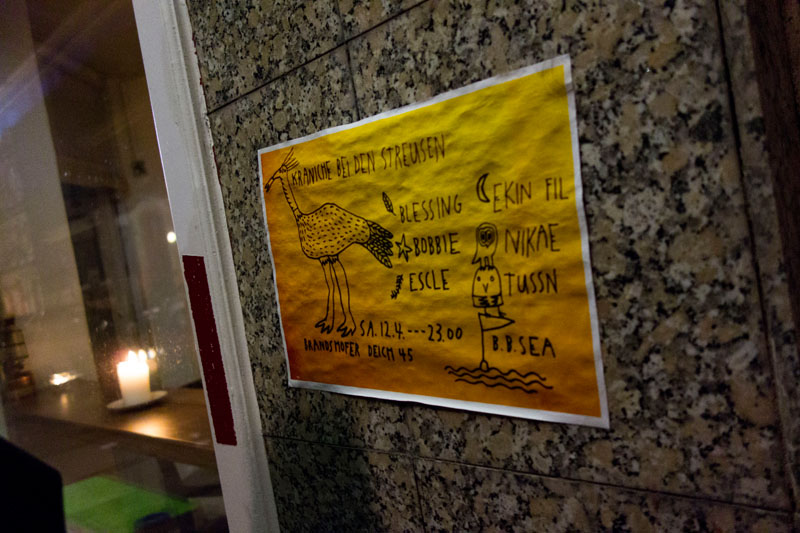 KRANICHE BEI DEN STREUSEN
BLESSING
BOBBIE
ESCLE
EKIN FIL
NIKAE
TUSSN
B.B.SEA
SA. 12.4. --- 23.00
BRANDSHOFER DEICH 45